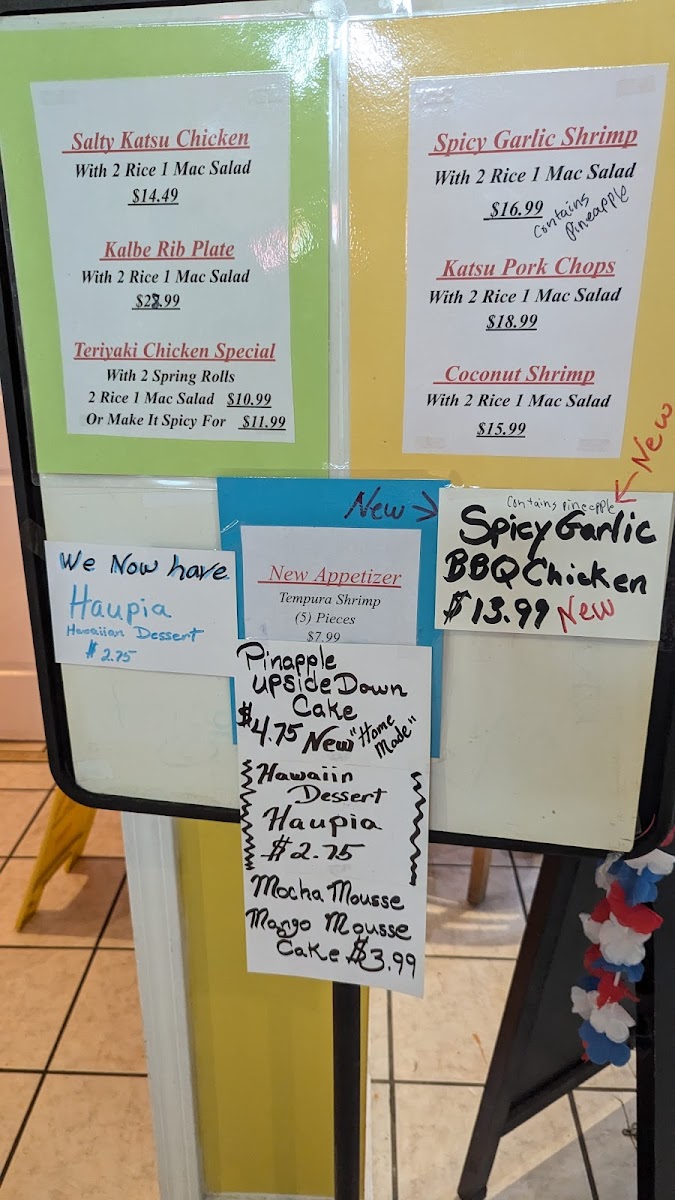 Salty Katsu Chicken
With 2 Rice 1 Mac Salad
$14.49
Kalbe Rib Plate
With 2 Rice 1 Mac Salad
.99
Teriyaki Chicken Special
With 2 Spring Rolls
2 Rice 1 Mac Salad $10.99
Or Make It Spicy For $11.99
Spicy Garlic Shrimp
With 2 Rice 1 Mac Salad
$16.99
contains
pineapple
Katsu Pork Chops
With 2 Rice 1 Mac Salad
$18.99
Coconut Shrimp
With 2 Rice 1 Mac Salad
$15.99
New
We Now have
Haupia
Hawaiian Dessert
$2.75
New
New Appetizer
Tempura Shrimp
(5) Pieces
$7.99
contains pineapple
Spicy Garlic
BBQ Chicken
$13.99 New
Pinapple
upside Down
Cake
$4.75 New "Home
Made"
Hawaiin
Dessert
Haupia
$2.75
Mocha Mousse
Mango Mousse
Cake $3.99